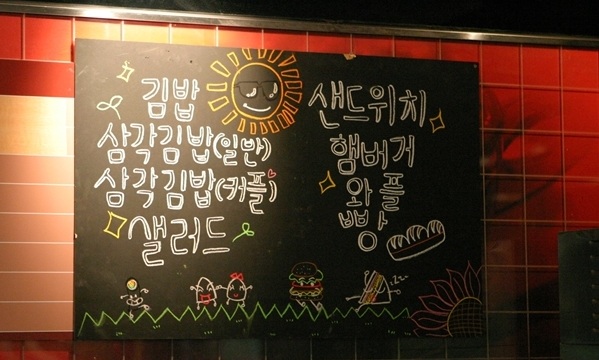 김밥
삼각김밥(일반)
삼각김밥(커플)
샐러드
샌드위치
햄버거
와플
빵